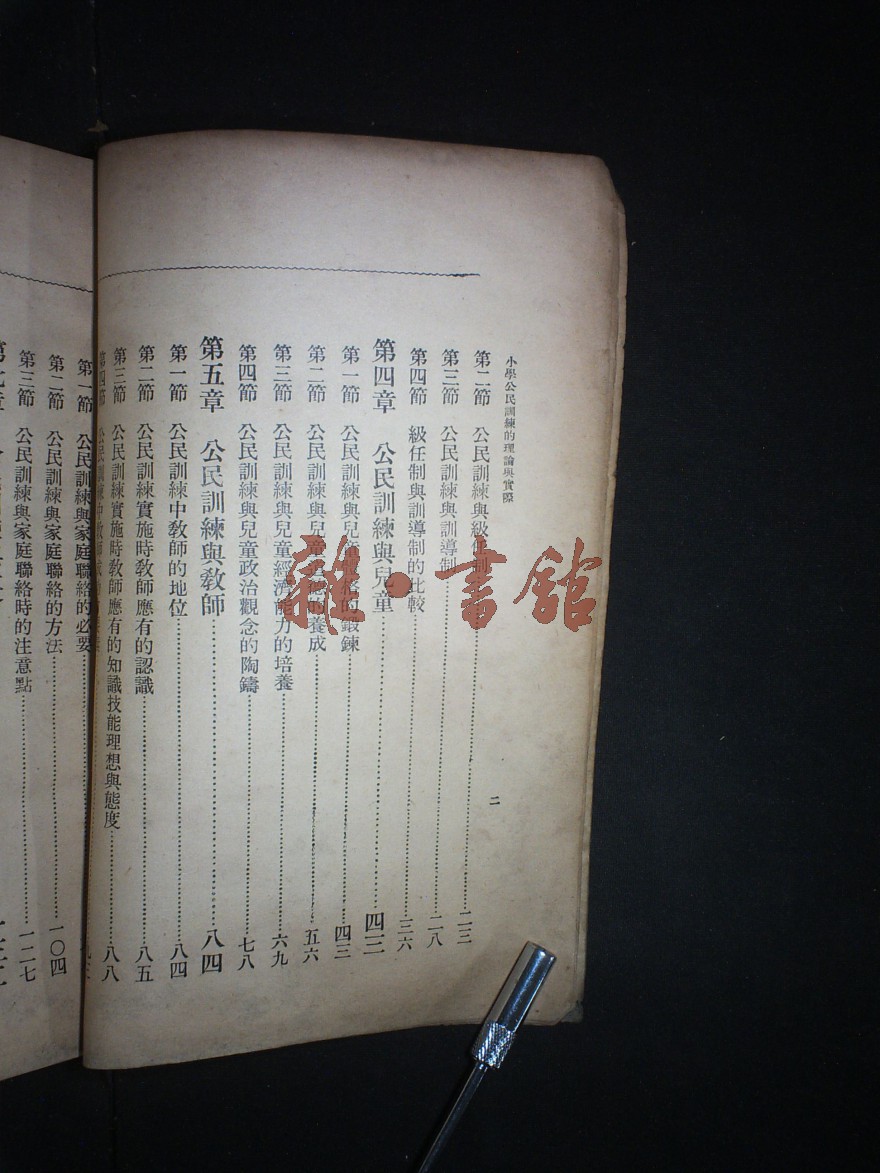 小學公民訓練的理論與實際
二
第二節 公民訓練與級任制 二三
第三節 公民訓練與訓導制 二八
第四節 級任制與訓導制的比較 三六
第四章 公民訓練與兒童 四三
第一節 公民訓練與兒童 的鍛鍊 四三
第二節 公民訓練與兒童 的養成 五六
第三節 公民訓練與兒童經濟能力的培養 六九
第四節 公民訓練與兒童政治觀念的陶鑄 七八
第五章 公民訓練與教師 八四
第一節 公民訓練中教師的地位 八四
第二節 公民訓練實施時教師應有的認識 八五
第三節 公民訓練實施時教師應有的知識技能理想與態度 八八
第四節 公民訓練中教師
第一節 公民訓練與家庭聯絡的必要
第二節 公民訓練與家庭聯絡的方法 一〇四
第三節 公民訓練與家庭聯絡時的注意點 一二七
雜·書館